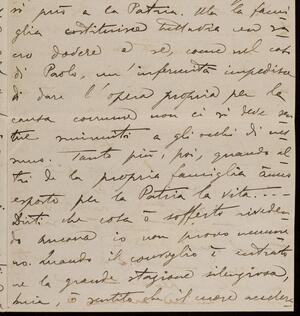 si può a la Patria. Ma la fami-
glia costituisce tuttavia un sa-
cro dovere e se, come nel caso
di Paolo, un'infermità impedisce
di dare l'opera propria per la
causa comune non ci si deve sen-
tire sminuiti a gli occhi di nes-
suno. Tanto più, poi, quando al-
tri de la propria famiglia ànno
esposto per la Patria la vita....
Dirti che cosa ò sofferto riveden-
do ancora io non provo nemme-
no. Quando il convoglio è entrato
ne la grande stazione silenziosa,
mia, ò sentito che il cuore